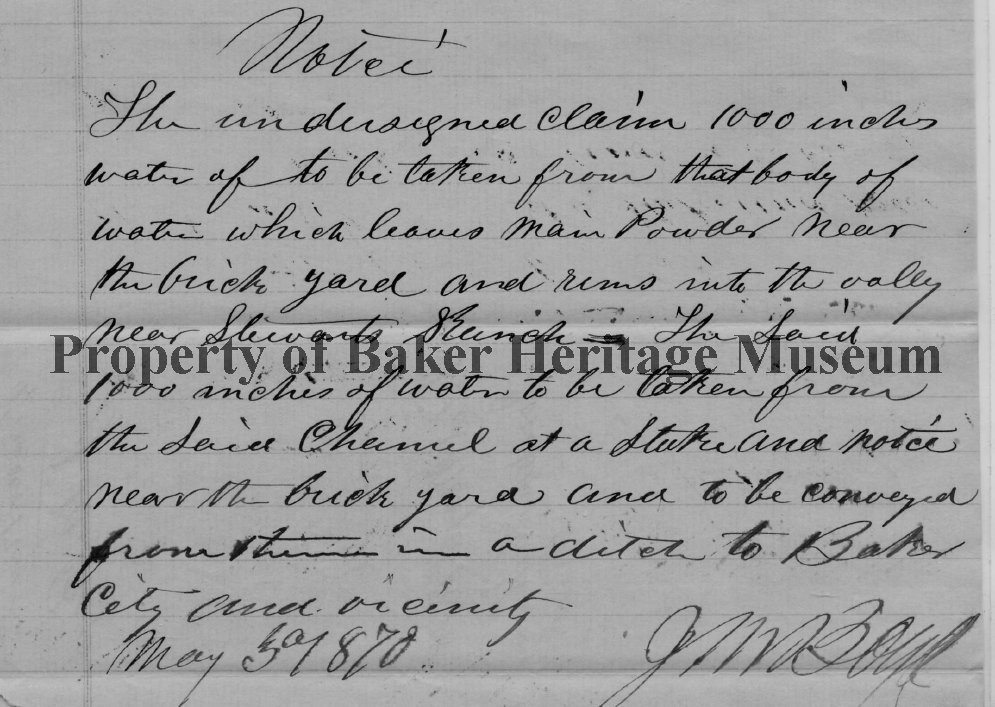 Notice
The undersigned claim 1000 inches
water of to be taken from that body of
water which leaves main Powder near
the brick yard and runs into the vally
near Stewarts Ranch = The Said
Property of Baker Heritage Museum
1000 inches of water to be taken from
the Said Channel at a Stake and notice
near the brick yard and to be conveyed
from in a ditch to Baker
City and vicinity
May 5th 1870
Boyd